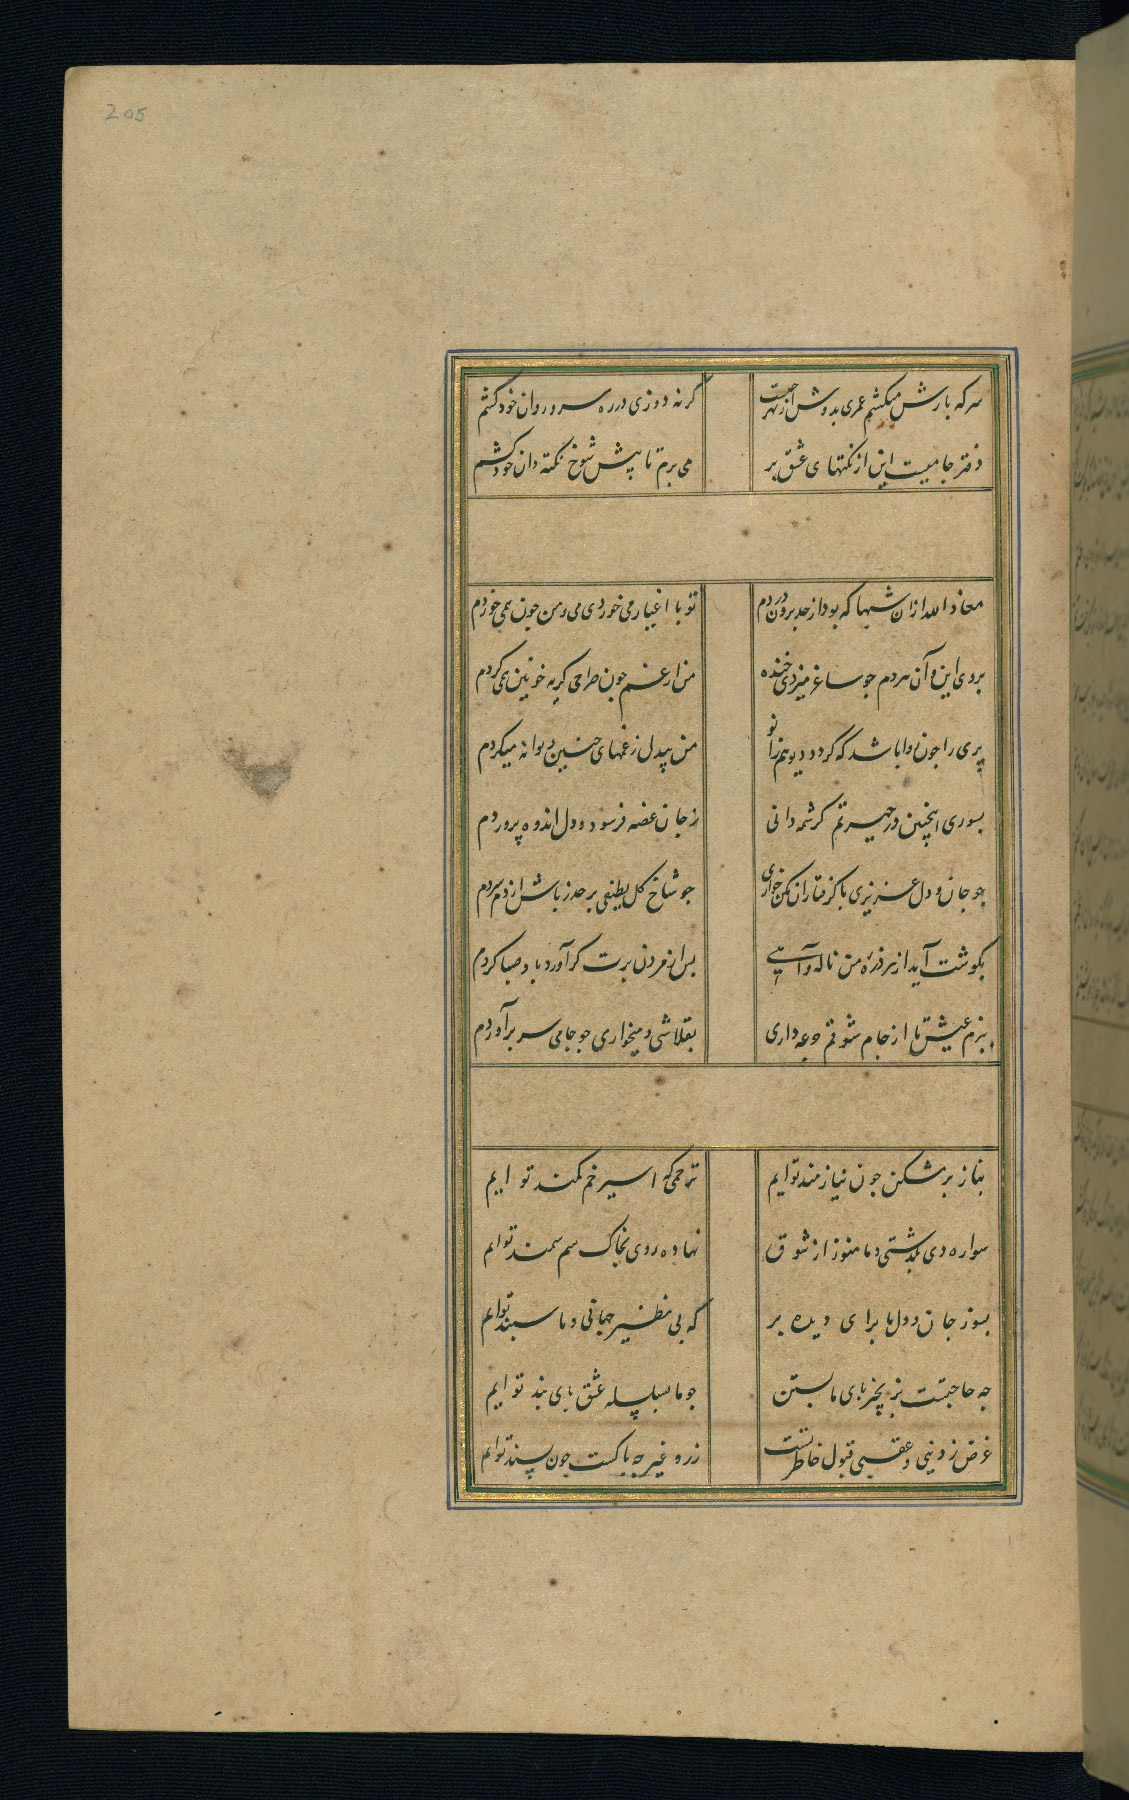 205
سر که بارش میکشم عمری بدوش از بهر چیست
گر نه روزی در ره سرو روان خود کشم
دفتر جامیست این از نکتهای عشق پر
می برم تا پیش شوخ نکته دان خود کشم
معاذ الله ازان شبها که بود از حد برون دردم
تو با اغیار می خوردی می و من خون همی خوردم
بروی این و آن هر دم چو ساغر میزدی خنده
من از غم چون صراحی گریه خونین همی کردم
پری را چون روا باشد که گردد دیو همزانو
من بیدل زغمهای چنین دیوانه میکردم
بسوزی اینچنین در حیرتم گر شمه دانی
ز جان غصه فرسود و دل اندوه پروردم
چو جان و دل عزیزی با گرفتاران مکن خواری
چو شاخ گل لطیفی بر حذر باش از دم سردم
بگوشت آید از هر ذره من ناله و آهی
پس از مردن برت گر آورد باد صبا گردم
ببزم عیش تا از جام شوقم جرعه دادی
بقلاشی و میخواری چو جامی سر برآوردم
بناز برمشکن چون نیازمند توایم
ترحمی که اسیر خم کمند توایم
سواره دی بگذشتی و ما هنوز از شوق
نهاده روی بخاک سم سمند توایم
بسوز جان و دل ما برای دیده بد
که بی نظیر جهانی و ما سپند توایم
چه حاجتست بزنجیر پای ما بستن
چو ما بسلسله عشق پای بند توایم
غرض ز دنیی و عقبی قبول خاطر تست
ز رد غیر چه باکست چون پسند توایم